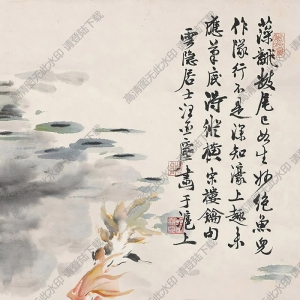 藻翻萍尾已如生妙絕魚兒
作隊行不是深知濠上趣未
應筆底得縱橫宋樓鑰句
雲隱居士汪亞塵畫于滬上